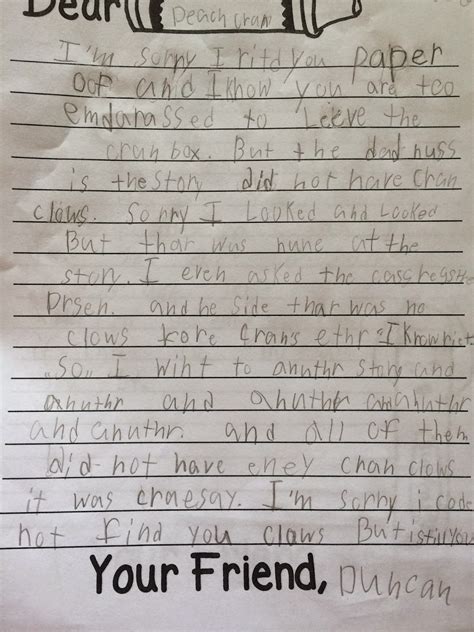 Dear
Peach cran
I'm sorry I ritd you paper
oof and I know you are too
emdarassed to Leeve the
cran box. But the dad nuss
is the story did not have Chan
claws. Sorry I Looked and Looked
But thar was nune at the
story. I even asked the casc
Prseh. and he side thar was no
clows kore crans ethr. I Know riet
So I wiht to anuthr Story and
anuthr and anuthr and anuthr
and anuthr. and all of them
did not have eney chan clows
it was craesay. I'm sorry i cod
not find you claws But i still you
Your Friend, Duncan